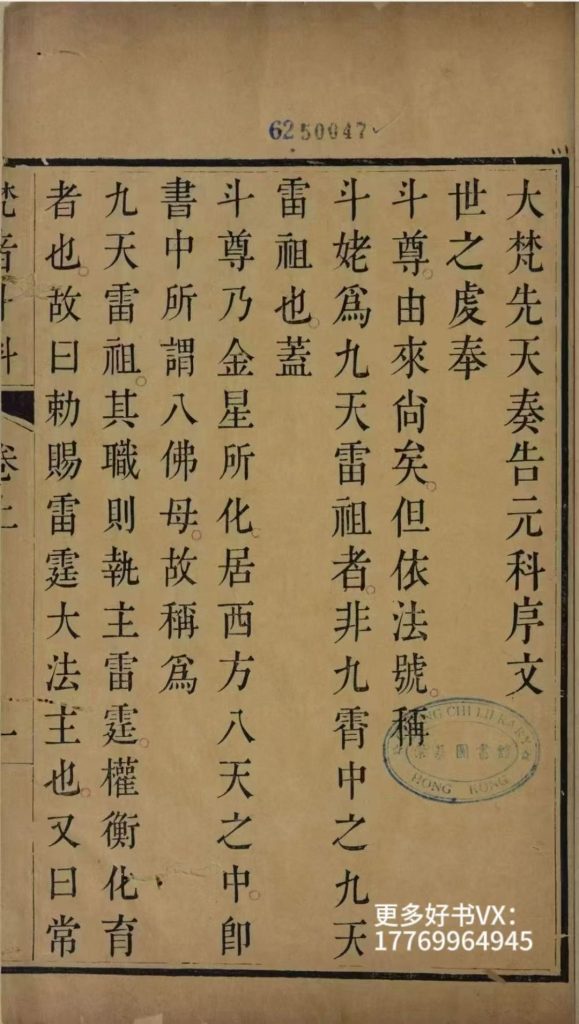 6250047
大梵先天奏告元科序文
世之虔奉
斗尊。由來尙矣。但依法號。稱
斗姥爲九天雷祖者。非九霄中之九天
雷祖也。蓋
斗尊乃金星所化。居西方八天之中。卽
書中所謂八佛母。故稱爲
九天雷祖。其職則執主雷霆。權衡化育
者也。故曰勅賜雷霆大法主也。又曰常
梵音斗科
卷上
一
圖書館
HONG KONG
更多好书VX：
17769964945